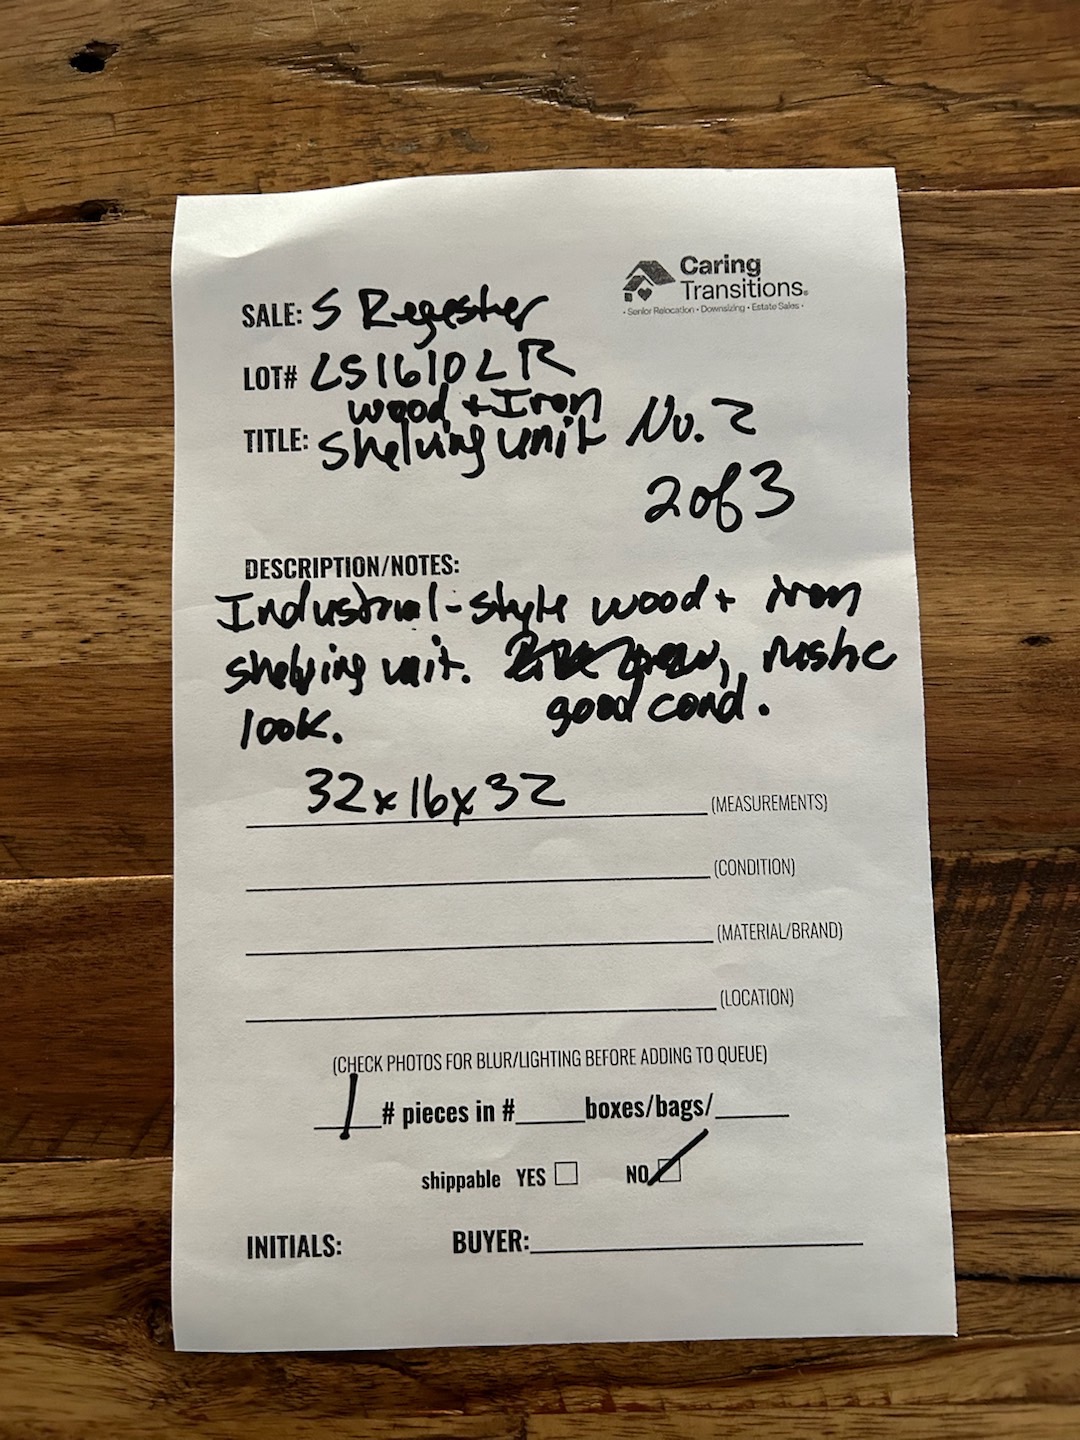 Caring
Transitions®
• Senior Relocation • Downsizing • Estate Sales •
SALE: S Regester
LOT# LS1610LR
TITLE: wood + Iron
Shelving unit No. 2
2 of 3
DESCRIPTION/NOTES:
Industrial-style wood + iron
shelving unit. rustic
look. good cond.
32x16x32 (MEASUREMENTS)
(CONDITION)
(MATERIAL/BRAND)
(LOCATION)
(CHECK PHOTOS FOR BLUR/LIGHTING BEFORE ADDING TO QUEUE)
1 # pieces in # boxes/bags/
shippable YES NO
INITIALS: BUYER: